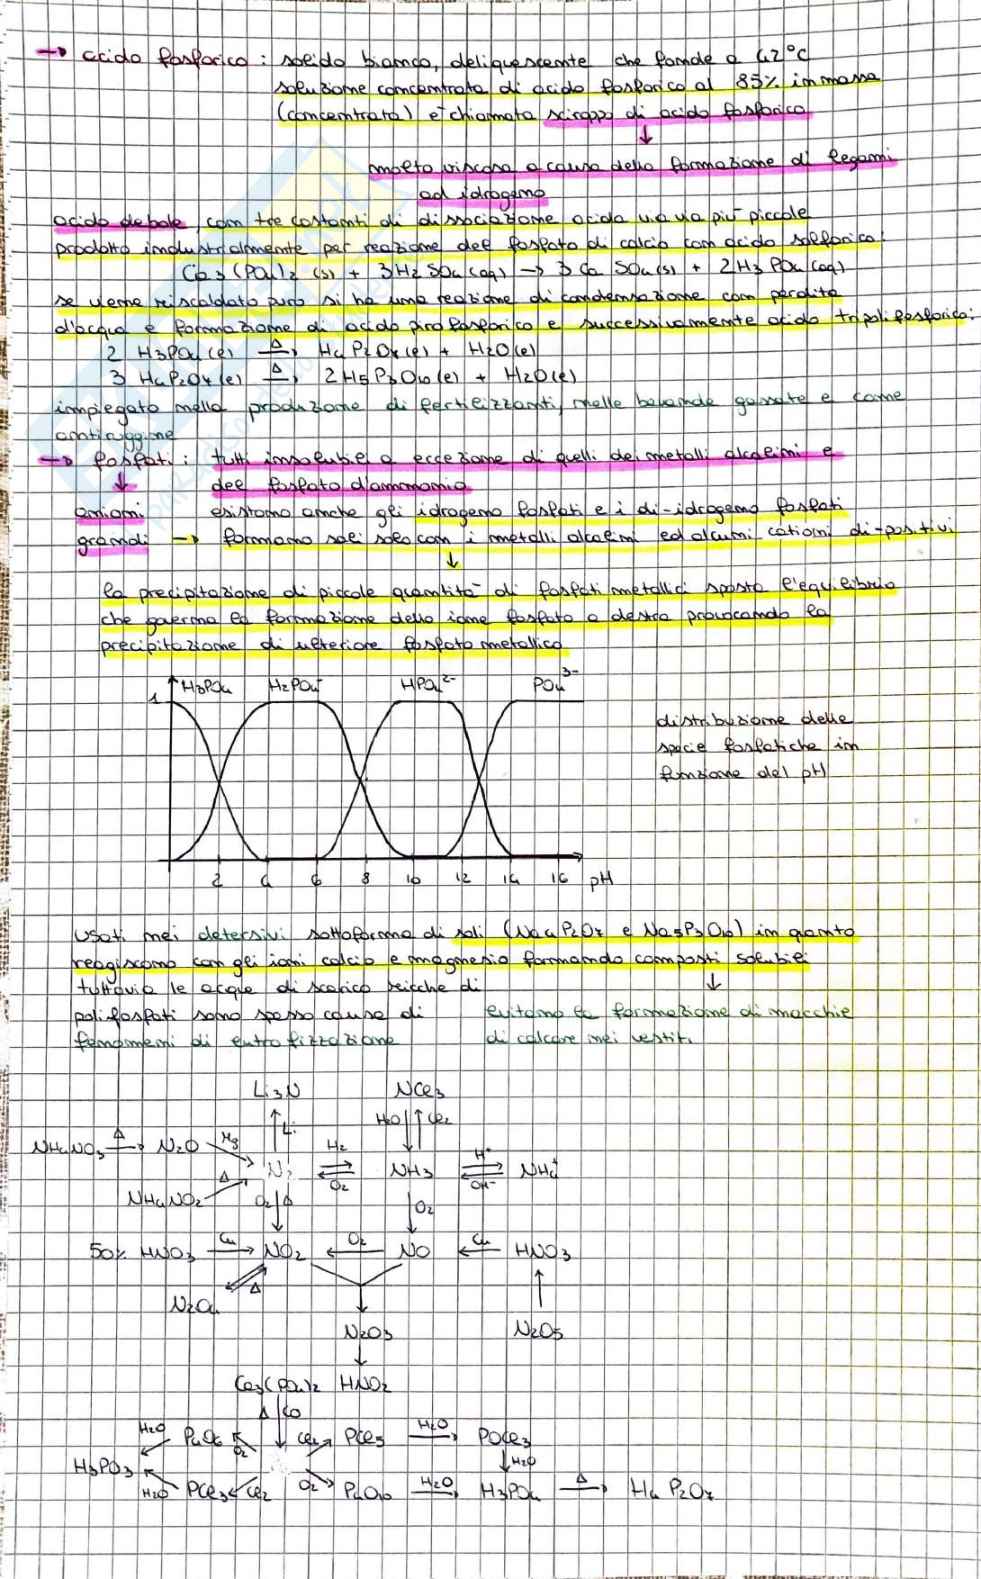 → acido fosforico : solido bianco, deliquescente che fonde a 42°C
soluzione concentrata di acido fosforico al 85% in massa
(concentrata) è chiamata sciroppo di acido fosforico
↓
molto viscosa a causa della formazione di legami
ad idrogeno
acido debole, con tre costanti di dissociazione acida via via più piccole
prodotto industrialmente per reazione del fosfato di calcio con acido solforico:
Ca3(PO4)2 (s) + 3H2SO4(aq) → 3CaSO4(s) + 2H3PO4(aq)
se viene riscaldato puro si ha una reazione di condensazione con perdita
d'acqua e formazione di acido pirofosforico e successivamente acido tripolifosforico:
2 H3PO4(l) —Δ→ H4P2O7(l) + H2O(l)
3 H4P2O7(l) —Δ→ 2H5P3O10(l) + H2O(l)
impiegato nella produzione di fertilizzanti, nelle bevande gassate e come
antiruggine
→ fosfati: tutti insolubili a eccezione di quelli dei metalli alcalini e
↓ del fosfato d'ammonio
anioni esistono anche gli idrogeno fosfati e i di-idrogeno fosfati
grandi → formano sali solo con i metalli alcalini ed alcuni cationi di-positivi
↓
la precipitazione di piccole quantità di fosfati metallici sposta l'equilibrio
che governa la formazione dello ione fosfato a destra provocando la
precipitazione di ulteriore fosfato metallico
1 H3PO4 H2PO4- HPO4 2- PO4 3-
distribuzione delle
specie fosfatiche in
funzione del pH
2 4 6 8 10 12 14 16 pH
usati nei detersivi sottoforma di sali (Na4P2O7 e Na5P3O10) in quanto
reagiscono con gli ioni calcio e magnesio formando composti solubili
tuttavia le acque di scarico ricche di ↓
polifosfati sono spesso causa di evitano la formazione di macchie
fenomeni di eutrofizzazione di calcare nei vestiti
Li3N NCl3
↑Li H2O ↓↑ Cl2
NH4NO3 —Δ→ N2O —Mg→ N2 ⇌ H2 O2 NH3 ⇌ H+ OH- NH4+
NH4NO2 Δ O2 ↓ Δ ↓ O2
50% HNO3 —Cu→ NO2 ←O2— NO ←Cu— HNO3
Δ ↑
N2O4
N2O3 N2O5
↓
Ca3(PO4)2 HNO2
Δ ↓ CO
H2O P4O6 O2 Cl2 PCl5 —H2O→ POCl3
H3PO3 ↓ H2O
H2O PCl3 Cl2 O2 P4O10 —H2O→ H3PO4 —Δ→ H4P2O7